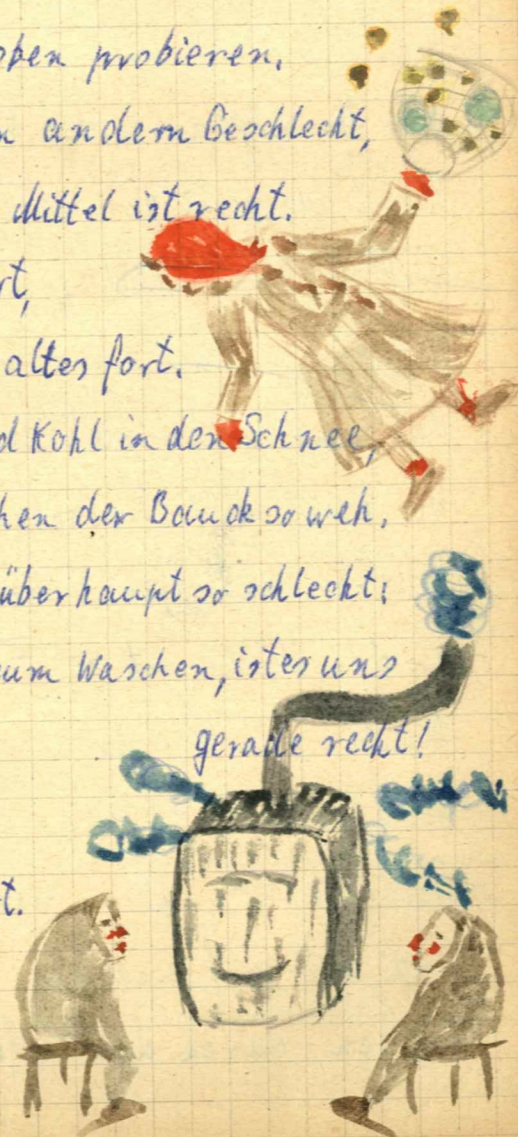 oben probieren.
n andern Geschlecht,
Mittel ist recht.
rt,
altes fort.
d Kohl in den Schnee,
hen der Bauch so weh.
überhaupt so schlecht;
zum Waschen, ist er uns
gerade recht!
t.